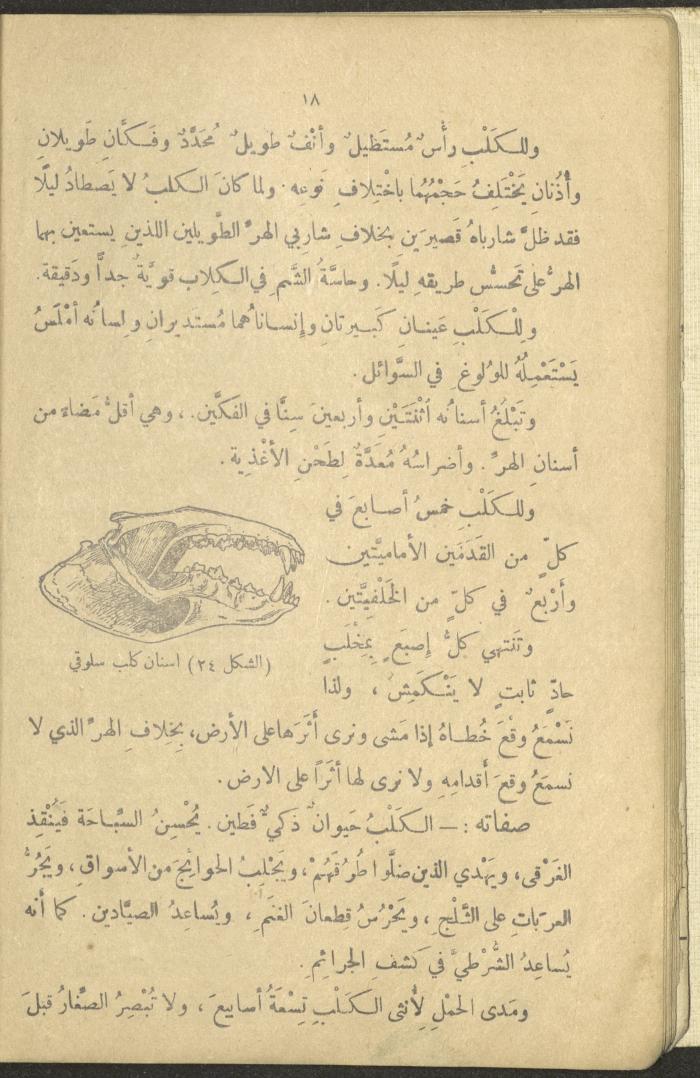 ١٨
وللكَلْبِ رأْسٌ مُستَطيلٌ وأنْفٌ طويلٌ مُحَدَّدٌ وفَكَّانِ طَويلانِ
وأُذُنانِ يَخْتَلِفُ حَجْمُهُما باخْتِلافِ نَوعِه . ولما كانَ الكلبُ لا يَصطادُ ليلًا
فقد ظلَّ شارباهُ قَصيرَينِ بخِلافِ شارِبي الهرِّ الطَّويلين اللذينِ يستعين بهما
الهرُّ على تَحسُّسِ طريقهِ ليلًا. وحاسَّةُ الشَّمِ في الكِلابِ قويَّةٌ جداً ودَقيقة.
ولِلْكَلْبِ عَينانِ كَبيرتانِ وإنساناهُما مُستديرانِ ولِسانُه أمْلَسُ
يَسْتَعْمِلُهُ للوُلوغِ في السَّوائل .
وتَبْلُغُ أسنانُه اثْنَتَيْنِ وأربعينَ سِنًّا في الفَكَّين. ، وهي أقلُّ مَضاءً من
أسنانِ الهرِّ . وأضراسُهُ مُعَدَّةٌ لِطَحْنِ الأغْذِية .
وللكَلْبِ خمسُ أصابعَ في
كلٍّ من القَدَمَين الأماميَّتين
وأرْبعٌ في كلٍّ من الخَلْفِيَّتين .
وتَنتهي كلُّ إصبَعٍ بِمِخْلَبٍ
حادٍّ ثابتٍ لا يَنْكَمِشُ ، ولذا
(الشكل ٢٤) اسنان كلب سلوقي
نَسْمَعُ وقْعَ خُطاهُ إذا مَشى ونرى أَثَرَها على الأرض، بخِلافِ الهرِّ الذي لا
نسمعُ وقعَ أقدامِهِ ولا نرى لها أثَراً على الارض .
صفاته : — الكَلْبُ حَيوانٌ ذكيٌّ فَطين . يُحْسِنُ السِّباحَة فَيُنْقِذ
الغَرْقى، ويَهْدي الذين ضلُّوا طُرُقَهُمْ، ويَجْلِبُ الحوائجَ من الأسواقِ، ويَجُرُّ
العرَباتِ على الثَّلْجِ ، ويَحْرُسُ قِطعانَ الغَنَمِ ، ويُساعِدُ الصيَّادين . كما أنه
يُساعِدُ الشُّرْطيَّ في كَشْفِ الجرائِمِ .
ومَدى الحمْلِ لِأُنثى الكَلْبِ تِسْعَةُ أسابيعَ ، ولا تُبْصِرُ الصِّغارُ قبلَ